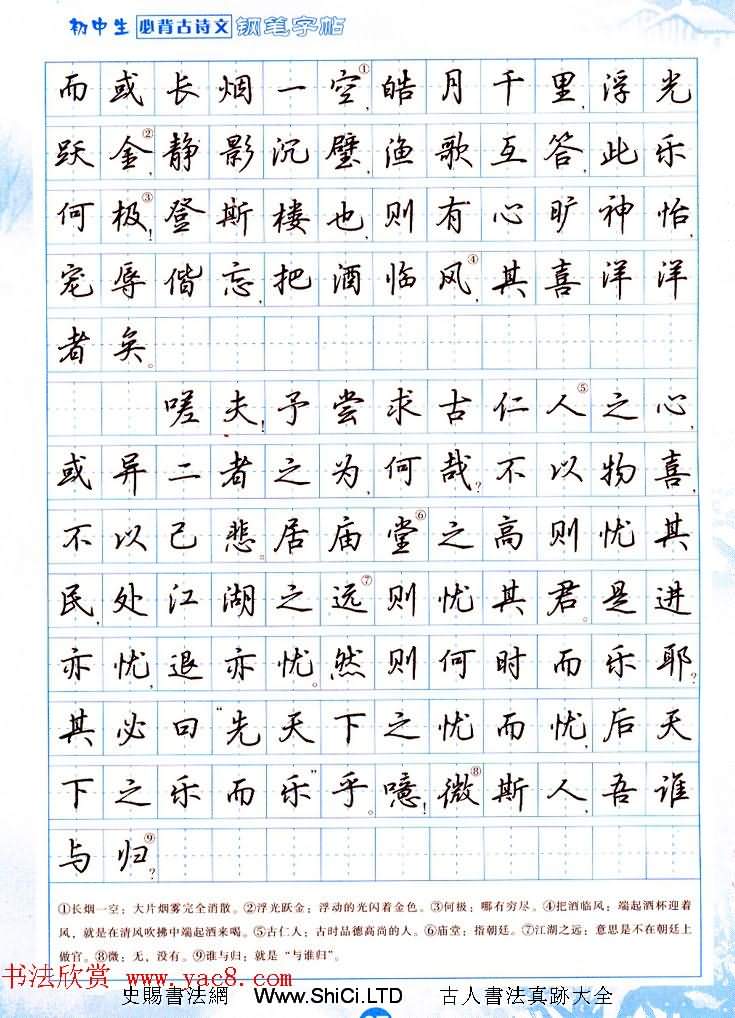 初中生 必背古诗文 钢笔字帖
而或长烟一空①,皓月千里,浮光
跃金②,静影沉璧,渔歌互答,此乐
何极③!登斯楼也,则有心旷神怡,
宠辱偕忘,把酒临风④,其喜洋洋
者矣。
嗟夫!予尝求古仁人⑤之心,
或异二者之为,何哉?不以物喜,
不以己悲。居庙堂⑥之高则忧其
民,处江湖之远⑦则忧其君。是进
亦忧,退亦忧。然则何时而乐耶?
其必曰“先天下之忧而忧,后天
下之乐而乐”乎。噫!微⑧斯人,吾谁
与归⑨?
①长烟一空:大片烟雾完全消散。②浮光跃金:浮动的光闪着金色。③何极:哪有穷尽。④把酒临风:端起酒杯迎着
风,就是在清风吹拂中端起酒来喝。⑤古仁人:古时品德高尚的人。⑥庙堂:指朝廷。⑦江湖之远:意思是不在朝廷上
做官。⑧微:无,没有。⑨谁与归:就是“与谁归”。
书法欣赏 www.yac8.com
史賜書法網 Www.ShiCi.LTD 古人書法真跡大全